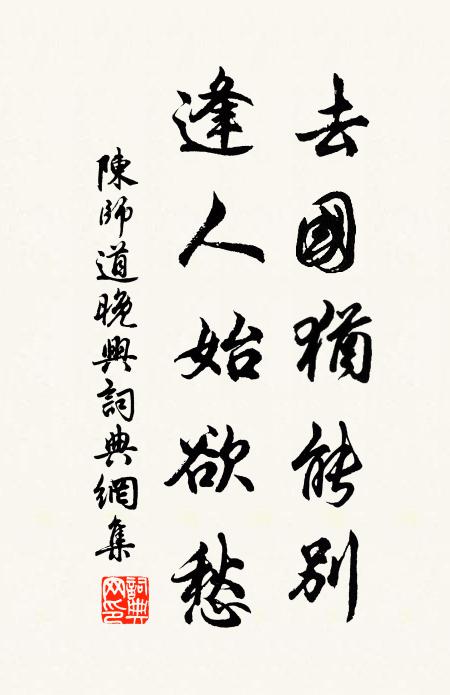 去國猶能別
逢人始欲愁
陳師道晚興詞典網集
詞典网印